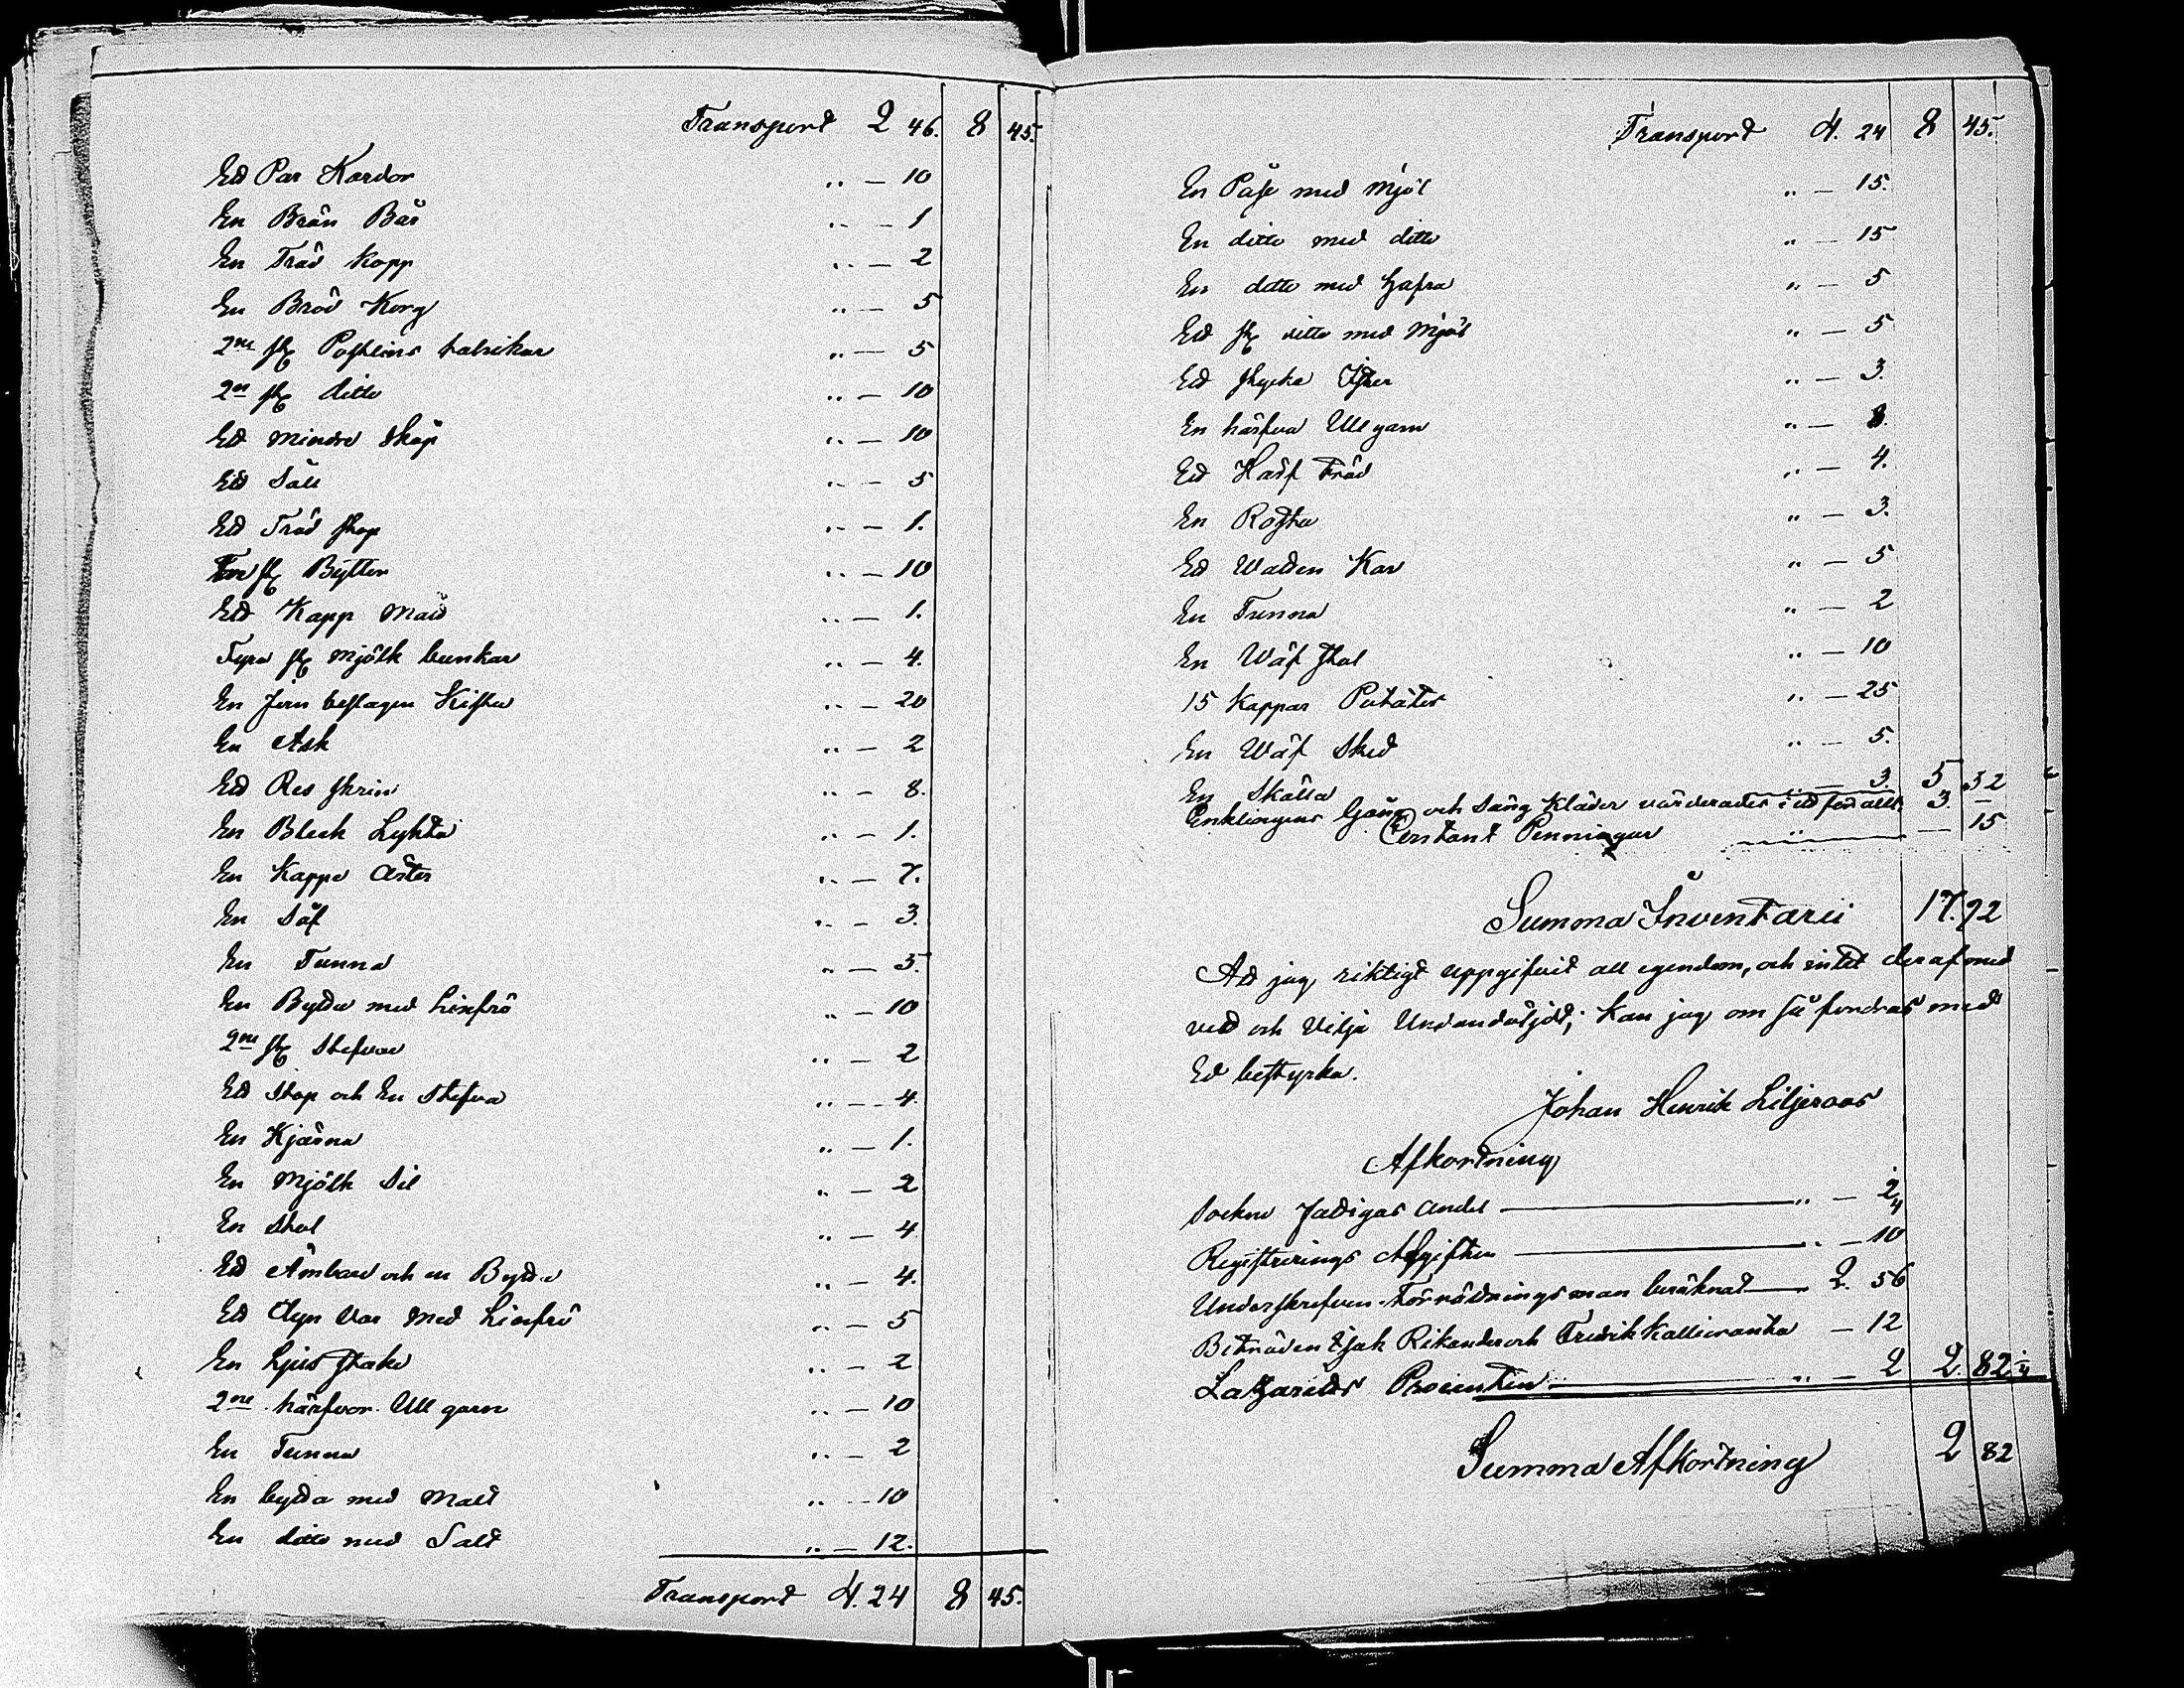 Transport 2 46. 8 45.
Ett Par Kardor „ — 10
En Brän Bår „ — 1
En Träd Kopp „ — 2
En Bröd Korg „ — 5
2ne st Postlins talrikar „ — 5
2ne st ditto „ — 10
Ett mindre Skåp „ — 10
Ett Såll „ — 5
Ett Träd stop „ — 1.
Tre st Byttor „ — 10
Ett Kapp Mått „ — 1.
Fyra st Mjölk bunkar „ — 4.
En Jern beslagen Kista „ — 20
En Ask „ — 2
Ett Res skrin „ — 8.
En Bleck Lykta „ — 1.
En Kappe Ärter „ — 7.
En Såf „ — 3.
En Tunna „ — 5.
En Bytta med Linfrö „ — 10
2ne st Stefvor „ — 2
Ett Stop och En Stefva „ — 4.
En Kjärna „ — 1.
En Mjölk Sil „ — 2
En Stol „ — 4
Ett Ämbare och en Bytta „ — 4.
Ett Dyn Var med Linfrö „ — 5
En Ljus stake „ — 2
2ne härfvor Ull garn „ — 10
En Tunna „ — 2
En bytta med Malt „ — 10
En ditto med Salt „ — 12.
Transport 4. 24 8 45.
Transport 4. 24 8 45.
En Påse med Mjöl „ — 15.
En ditto med ditto „ — 15
En ditto med Hafra „ — 5
Ett st ditto med Mjöl „ — 5
Ett stycke Ister „ — 3.
En härfva Ull garn „ — 8.
Ett Half Träd „ — 4.
En Rosta „ — 3.
Ett Watten Kar „ — 5
En Tunna „ — 2
En Wäf stol „ — 10
15 Kappar Potäter „ — 25
En Wäf Sked „ — 5.
En Skålla 3. 5 52
Enklingens Gång och Säng Kläder värderades i ett för allt 3. —
Contant Penningar „ — 15
Summa Inventarii 17. 92
Att jag riktigt uppgifvit all egendom, och intet deraf med
vett och Vilja Undandöljdt; Kan jag om så fordras med
Ed bestyrka.
Johan Henrik Liljeroos
Afkortning
Socken Fattigas Andel „ — 2 1/4
Registrerings Afgiften „ — 10
Underskrefven Förrättningsman beräknat 2. 56
Biträden Isak Rikander och Fredrik Kallioranta — 12
Lazaretts Procenten „ — 2 2. 82 1/4
Summa Afkortning 2 82